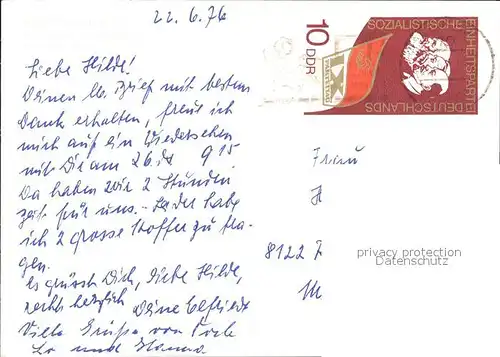 22.6.76
Liebe Hilde!
Deinen lb. Brief mit bestem
Dank erhalten, freut ich
mich auf ein Wiedersehen
mit Dir am 26. 9 15
Da haben wir 2 Stunden
Zeit für uns. - Leider habe
ich 2 grosse Koffer zu tra-
gen.
Es grüsst Dich, liebe Hilde,
recht herzlich Deine
Viele Grüße von
und
10
DDR
SOZIALISTISCHE
EINHEITSPARTEI
DEUTSCHLANDS
Frau
H
8122
privacy protection
Datenschutz